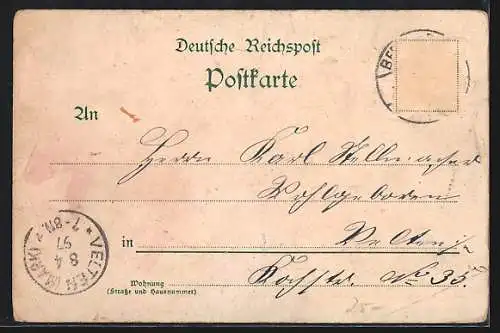 Deutsche Reichspost
Postkarte
BE
An
Herrn Karl Stellmacher
Wohlgeboren
in Velten
VELTEN (MARK)
8 4
97
7-8N.
Wohnung
(Straße und Hausnummer)
Kochstr. No 35.
25-